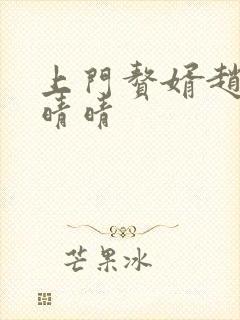 上門贅婿趙
晴晴
芒果冰